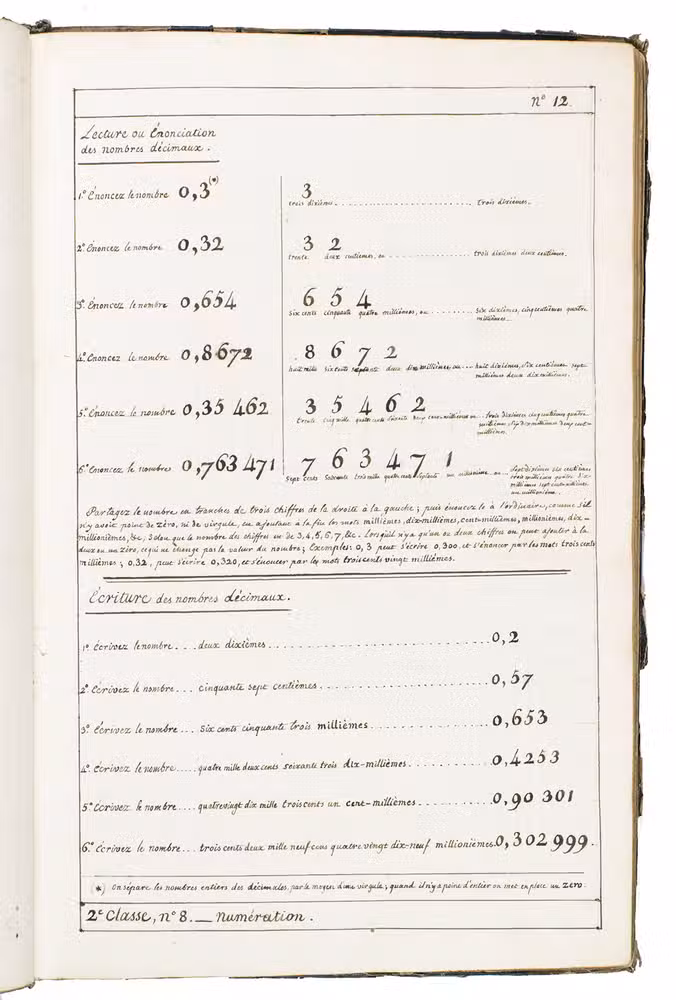 N° 12.
Lecture ou Énonciation
des nombres décimaux.
1° Énoncez le nombre 0,3(*) 3
trois dixièmes. trois dixièmes.
2° Énoncez le nombre 0,32 3 2
trente deux centièmes, ou trois dixièmes deux centièmes.
3° Énoncez le nombre 0,654 6 5 4
six cents cinquante quatre millièmes, ou six dixièmes, cinq centièmes quatre
millièmes.
4° Énoncez le nombre 0,8672 8 6 7 2
huit mille six cents septante deux dix-millièmes, ou huit dixièmes, six centièmes sept
millièmes deux dix millièmes.
5° Énoncez le nombre 0,35 462 3 5 4 6 2
trente cinq mille quatre cents soixante deux cent-millièmes ou trois dixièmes cinq centièmes quatre
millièmes, six dix millièmes deux cent-
millièmes.
6° Énoncez le nombre 0,763 471 7 6 3 4 7 1
Sept cents soixante trois mille quatre cents septante un millionièmes, ou Sept dixièmes six centièmes
trois millièmes quatre dix-
millièmes sept cent-millièmes
un millionième.
Partagez le nombre en tranches de trois chiffres de la droite à la gauche; puis énoncez le à l'ordinaire, comme s'il
n'y avoit point de zéro, ni de virgule, en ajoutant à la fin les mots millièmes, dix-millièmes, cent-millièmes, millionièmes, dix-
millionièmes, &c, selon que le nombre des chiffres est de 3, 4, 5, 6, 7, &c. Lorsqu'il n'y a qu'un ou deux chiffres on peut ajouter à la
deux ou un zéro, ce qui ne change pas la valeur du nombre; Exemples: 0,3 peut s'écrire 0,300, et s'énoncer par les mots trois cents
millièmes; 0,32, peut s'écrire 0,320, et s'énoncer par les mots trois cents vingt millièmes.
Écriture des nombres décimaux.
1° Écrivez le nombre ... deux dixièmes 0,2
2° Écrivez le nombre ... cinquante sept centièmes 0,57
3° Écrivez le nombre ... six cents cinquante trois millièmes 0,653
4° Écrivez le nombre ... quatre mille deux cents soixante trois dix-millièmes 0,4253
5° Écrivez le nombre ... quatrevingt dix mille trois cents un cent-millièmes 0,90 301
6° Écrivez le nombre ... trois cents deux mille neuf cens quatre vingt dix-neuf millionièmes. 0,302 999.
(*) On sépare les nombres entiers des décimales, par le moyen d'une virgule; quand il n'y a point d'entier on met en place un zéro.
2e Classe, n° 8. — Numération.